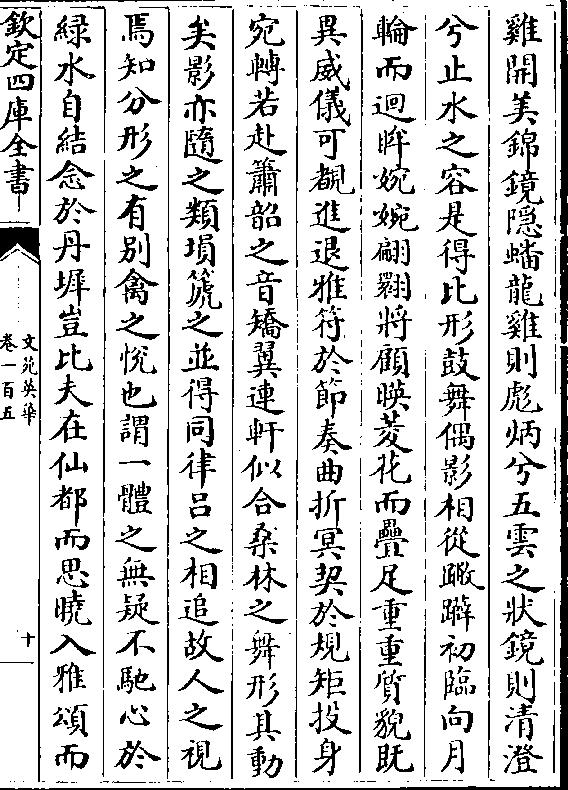 雞開美錦鏡隠蟠龍雞則彪炳兮五雲之狀鏡則清澄
兮止水之容是得比形鼓舞偶影相從蹶躃初臨向月
輪而迴眸婉婉翩翾將顧暎菱花而疊足重重質貌既
異威儀可覩進退雅符於節奏曲折冥契於規矩投身
宛轉若赴簫韶之音矯翼連軒似合桑林之舞形其動
矣影亦隨之類塤箎之並得同律呂之相追故人之視
焉知分形之有別禽之悅也謂一體之無疑不馳心於
緑水自結念於丹墀豈比夫在仙都而思曉入雅頌而
欽定四庫全書
文苑英華
卷一百五
十